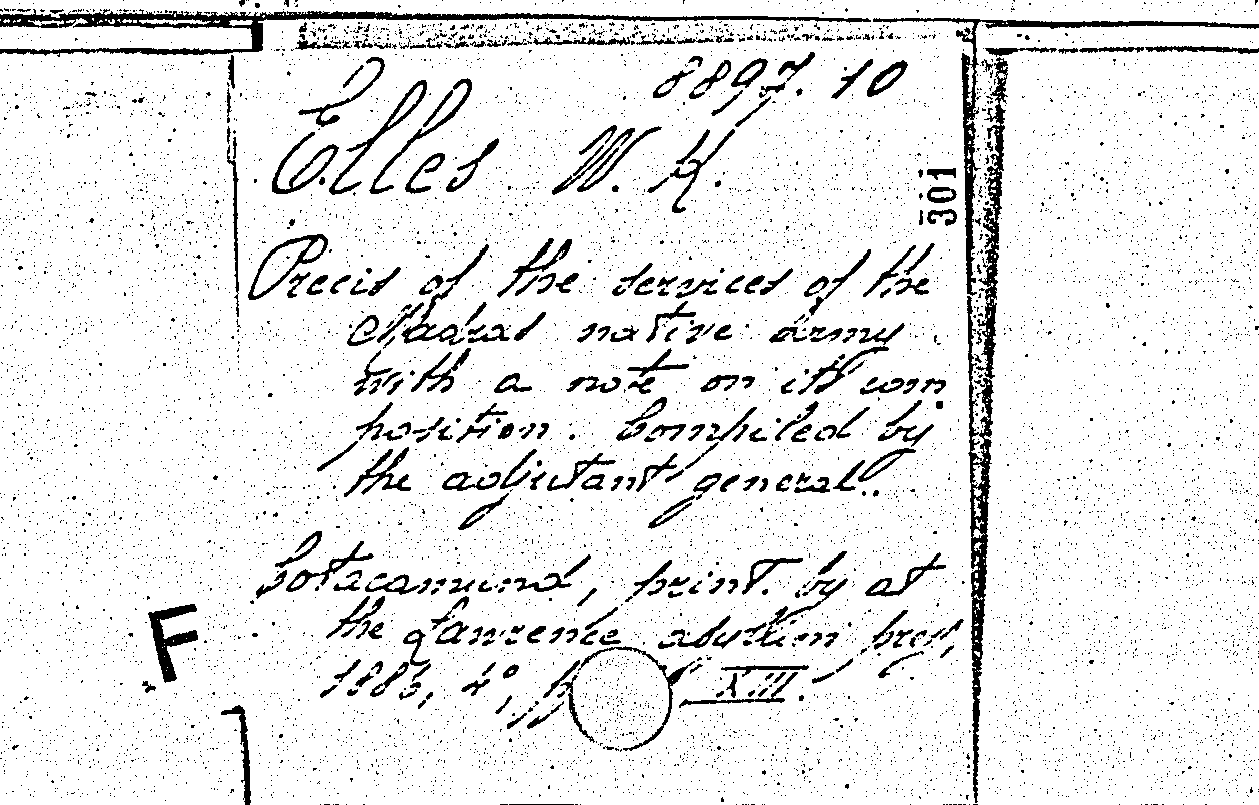 8897.10
Elles W. K.
301
Precis of the services of the
Madras native army
with a note on its com
position. Compiled by
the adjutant general.
Cotacamund, print. by at
the Lawrence asutlum press,
F
1883, 4°, XIII.